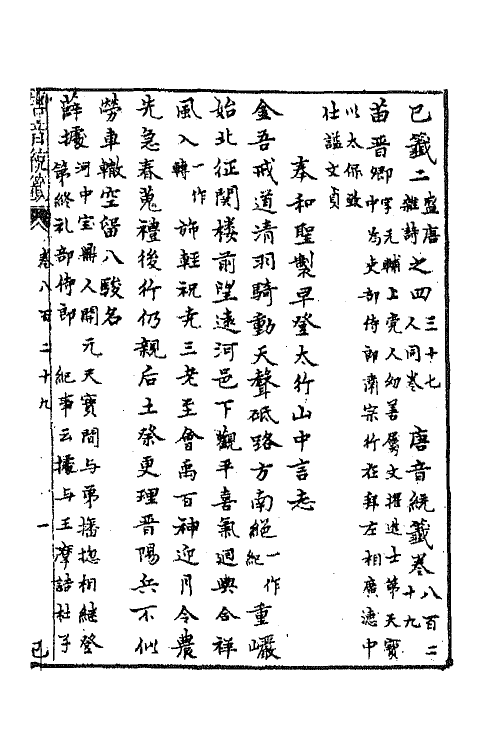 已籤二 盛唐雜詩之四 三十七人同卷 唐音統籤卷八百二十九
苗晉卿 字元輔上党人幼善屬文擢進士第天寶
中為吏部侍郎肅宗行在拜左相廣德中
以太保致
仕謚文貞
奉和聖製早登太行山中言志
金吾戒道清羽騎動天聲砥路方南絕一作紀重巖
始北征関樓前望遠河邑下觀平喜氣迴輿合祥
風入一作轉旆輕祝堯三老至會禹百神迎月令農
先急春蒐禮後行仍親后土祭更理晉陽兵不似
勞車轍空留八駿名
薛據 河中宝鼎人開元天寶間与弟播揔相継登
第終礼部侍郎 紀事云據与王摩詰杜子
唐音統籤 卷八百二十九 一 已